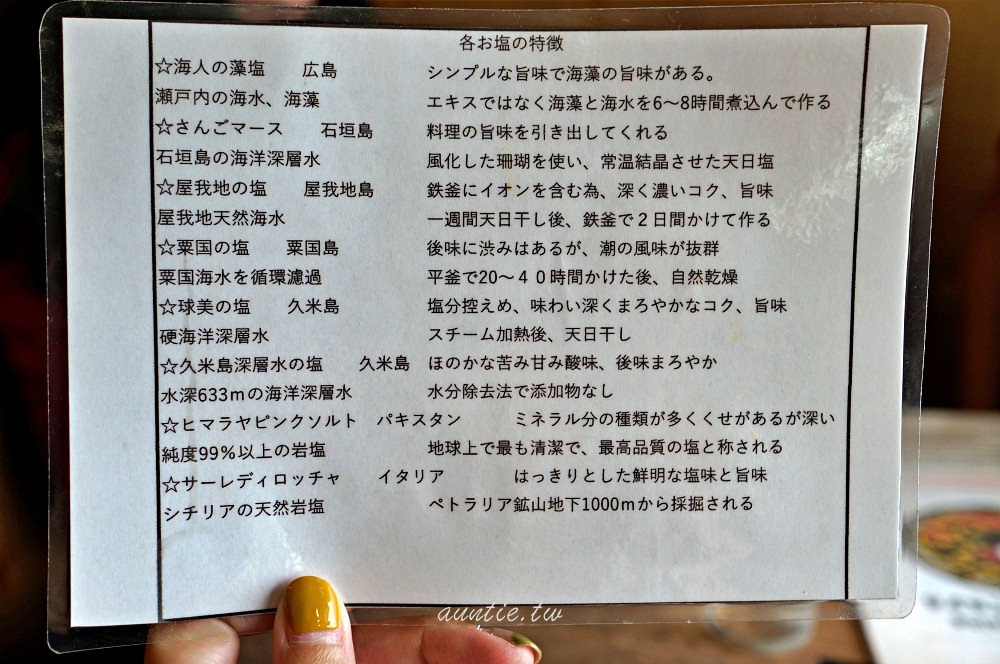 各お塩の特徴
☆海人の藻塩　　広島　　　　　シンプルな旨味で海藻の旨味がある。
瀬戸内の海水、海藻　　　　　　エキスではなく海藻と海水を6〜8時間煮込んで作る
☆さんごマース　　石垣島　　　料理の旨味を引き出してくれる
石垣島の海洋深層水　　　　　　風化した珊瑚を使い、常温結晶させた天日塩
☆屋我地の塩　　屋我地島　　　鉄釜にイオンを含む為、深く濃いコク、旨味
屋我地天然海水　　　　　　　　一週間天日干し後、鉄釜で２日間かけて作る
☆粟国の塩　　粟国島　　　　　後味に渋みはあるが、潮の風味が抜群
粟国海水を循環濾過　　　　　　平釜で20〜４０時間かけた後、自然乾燥
☆球美の塩　　久米島　　　　　塩分控えめ、味わい深くまろやかなコク、旨味
硬海洋深層水　　　　　　　　　スチーム加熱後、天日干し
☆久米島深層水の塩　　久米島　ほのかな苦み甘み酸味、後味まろやか
水深633mの海洋深層水　　　　　水分除去法で添加物なし
☆ヒマラヤピンクソルト　パキスタン　　　ミネラル分の種類が多くくせがあるが深い
純度99%以上の岩塩　　　　　　地球上で最も清潔で、最高品質の塩と称される
☆サーレディロッチャ　　イタリア　　　　はっきりとした鮮明な塩味と旨味
シチリアの天然岩塩　　　　　　ペトラリア鉱山地下1000mから採掘される
auntie.tw